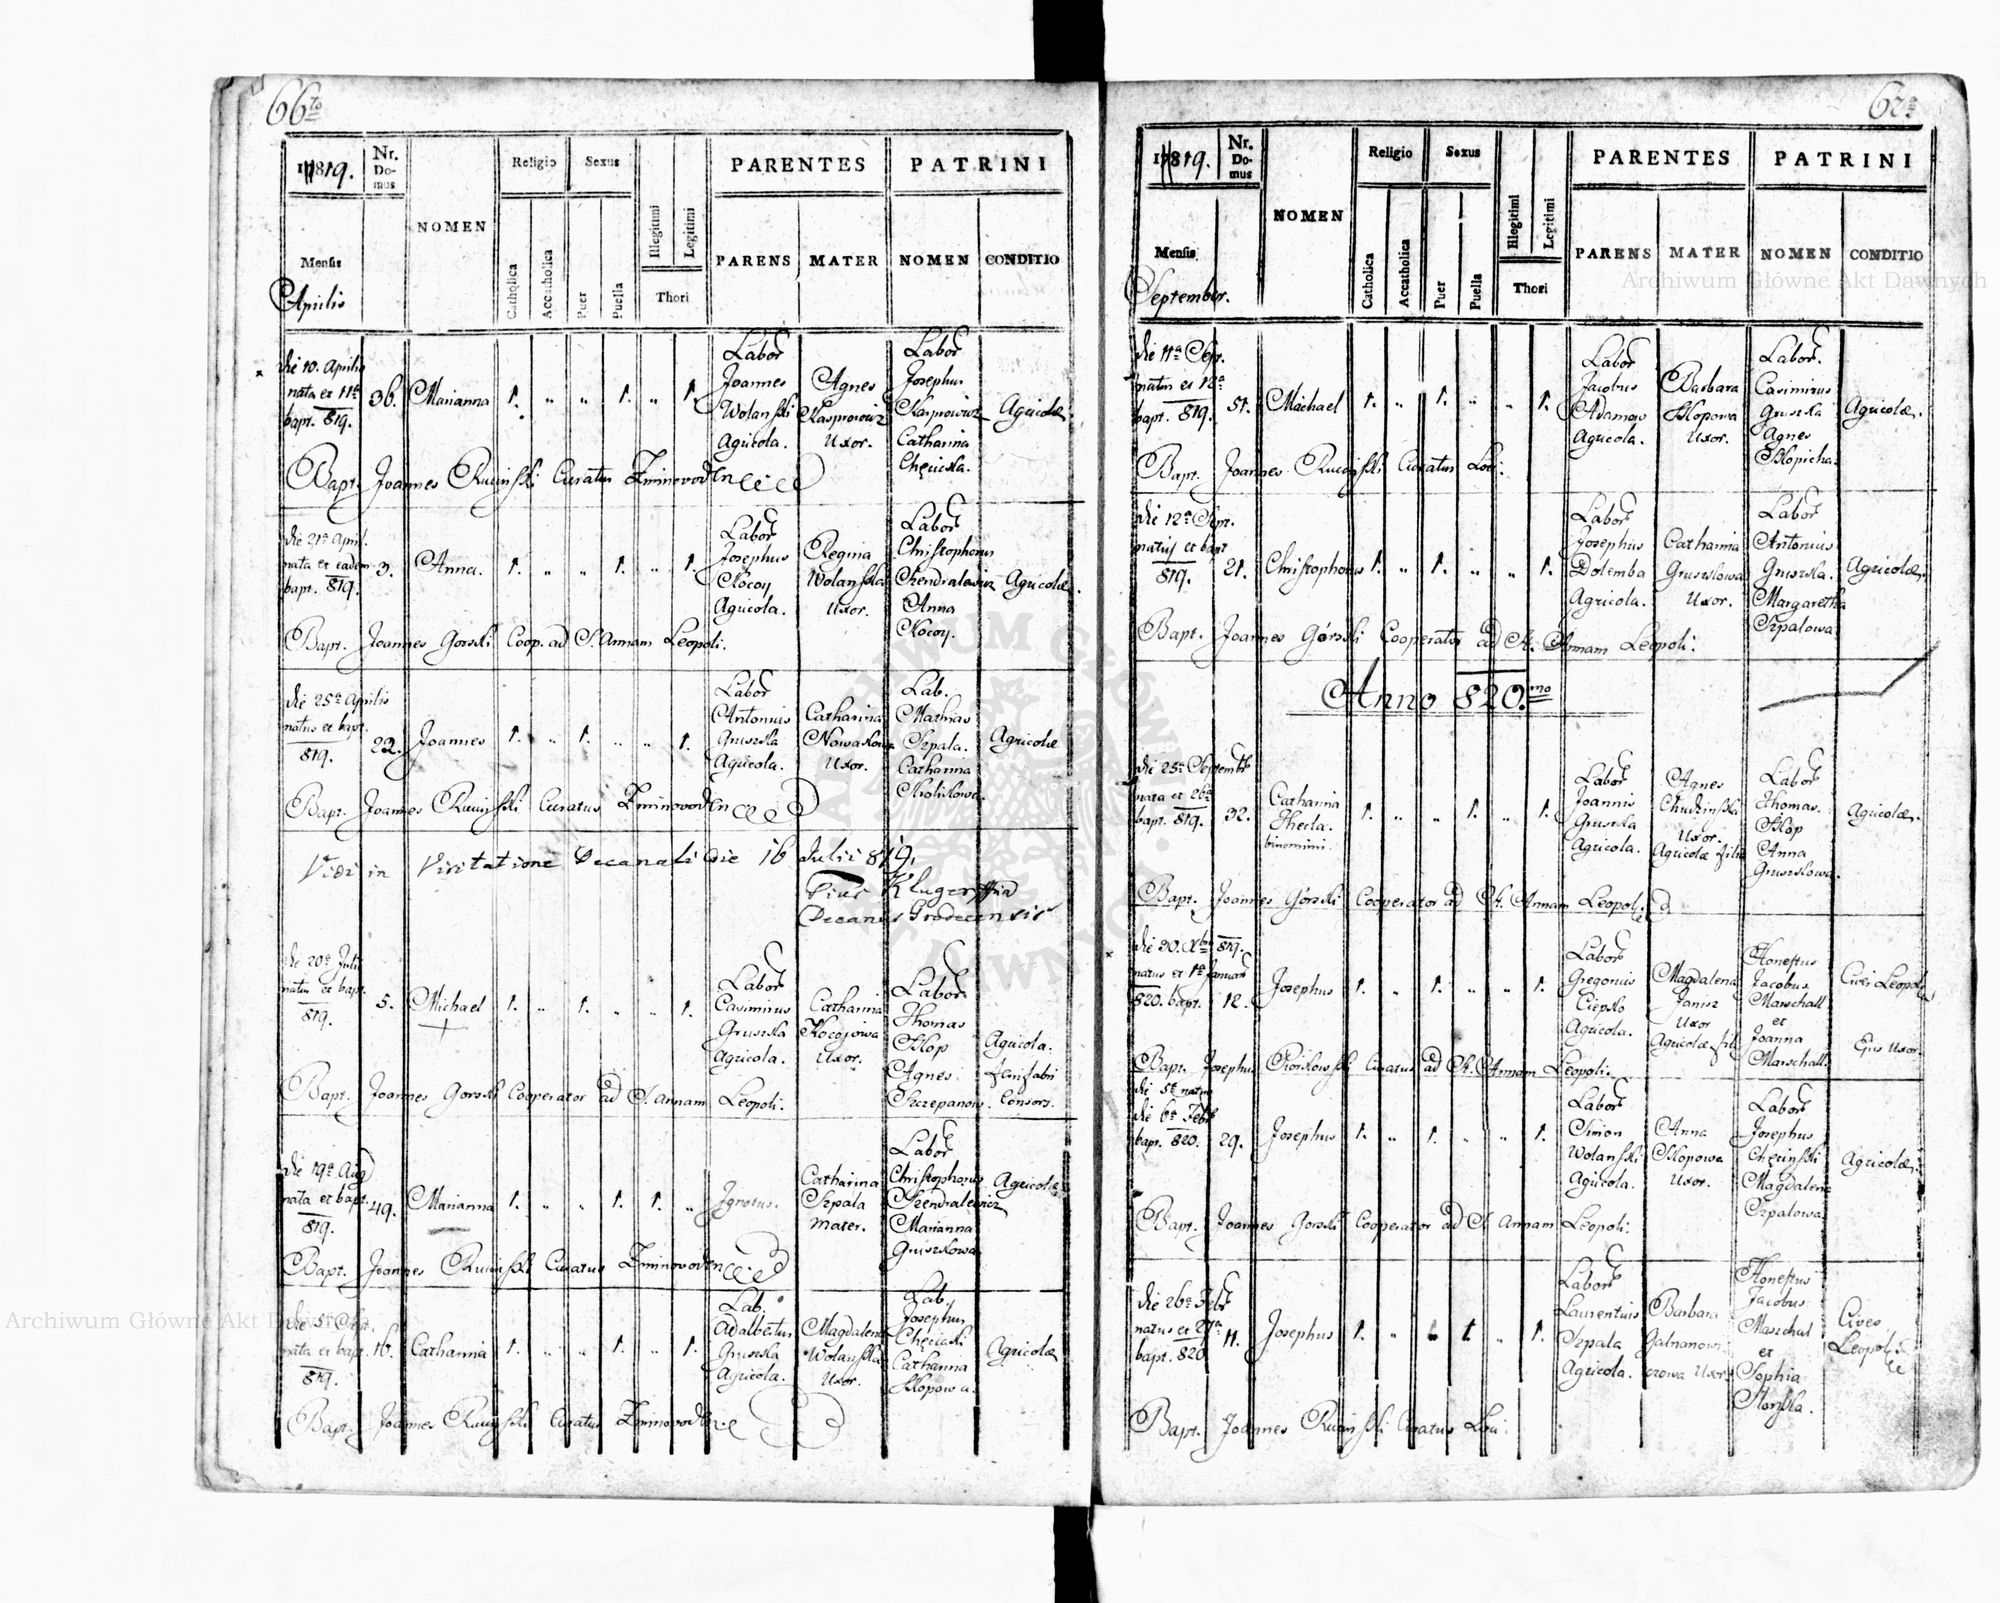 66to
1819.
Nr. Domus
NOMEN
Religio
Sexus
PARENTES
PATRINI
Mensis
Aprilis
Catholica
Accatholica
Puer
Puella
Illegitimi
Legitimi
Thori
PARENS
MATER
NOMEN
CONDITIO
die 10. Aprilis nata et 11a bapt. 819.
36.
Marianna
1. „ „ 1. „ 1.
Labor Joannes Wolański Agricola.
Agnes Kasprowicz Uxor.
Labor Josephus Kasprowicz Catharina
Agricolæ
Bapt. Joannes Ruciński Curatus
die 21a April. nata et eadem bapt. 819.
3.
Anna.
1. „ „ 1. „ 1.
Labor Josephus Kocoy Agricola.
Regina Wolańska Uxor.
Labor Christophorus Anna Kocoy.
Agricolæ.
Bapt. Joannes Gorski Coop. ad S. Annam Leopoli.
die 25a Aprilis natus et bapt. 819.
22.
Joannes
1. „ 1. „ „ 1.
Labor Antonius Gruszka Agricola.
Catharina Uxor.
Lab. Mathias Szpala. Catharina
Agricolæ
Bapt. Joannes Ruciński Curatus
Vidi in Visitatione Decanali die 16 Julii 819.
Pius Kluger
Decanus Grodecensis
die 20a Julii natus et bapt. 819.
5.
Michael
1. „ 1. „ „ 1.
Labor Casimirus Gruszka Agricola.
Catharina Kocojowa Uxor.
Labor Thomas Sklop Agnes
Agricola. Consors.
Bapt. Joannes Gorski Cooperator ad S. Annam Leopoli.
die 19a Aug nata et bapt. 819.
49.
Marianna
1. „ „ 1. 1. „
Ignotus.
Catharina Szpala Mater.
Labor Christophorus Marianna Gruszkowa
Agricolæ
Bapt. Joannes Ruciński Curatus
die 5a Sept. nata et bapt. 819.
16.
Catharina
1. „ „ 1. „ 1.
Lab. Adalbertus Gruszka Agricola.
Magdalena Wolańska Uxor.
Lab. Josephus Catharina Sklopowa.
Agricolæ
Bapt. Joannes Ruciński Curatus
1819.
Nr. Domus
NOMEN
Religio
Sexus
PARENTES
PATRINI
Mensis
September.
Catholica
Accatholica
Puer
Puella
Illegitimi
Legitimi
Thori
PARENS
MATER
NOMEN
CONDITIO
die 11a Sept. natus et 12a bapt. 819.
51.
Michael
1. „ 1. „ „ 1.
Labor Jacobus Adamow Agricola.
Barbara Sklopowa Uxor.
Labor. Casimirus Gruszka Agnes
Agricolæ.
Bapt. Joannes Ruciński Curatus Loci.
die 12a Sept. natus et bapt 819.
21.
Christophorus
1. „ 1. „ „ 1.
Labor Josephus Dolemba Agricola.
Catharina Gruszkowa Uxor.
Labor Antonius Gruszka. Margaretha Szpalowa
Agricolæ.
Bapt. Joannes Górski Cooperator ad St. Annam Leopoli.
Anno 820.mo
die 25a Septembr nata et 26a bapt. 819.
32.
Catharina Thecla. binomini.
1. „ „ 1. „ 1.
Labor Joannis Gruszka Agricola.
Agnes Uxor. Agricolæ filia
Labor Thomas. Sklop Anna Gruszkowa.
Agricolæ.
Bapt. Joannes Górski Cooperator ad St. Annam Leopoli
die 30. Xbris 819. natus et 1a Januarii 820. bapt.
12.
Josephus
1. „ 1. „ „ 1.
Labor Gregorius Agricola.
Magdalena Janisz Uxor Agricolæ filia
Honestus Jacobus Marschall et Joanna Marschall.
Civis Leopoli Ejus Uxor.
Bapt. Josephus Curatus ad St. Annam Leopoli.
die 5a natus die 6a Febr bapt. 820.
29.
Josephus
1. „ 1. „ „ 1.
Labor Simon Wolański Agricola.
Anna Sklopowa Uxor.
Labor Josephus Magdalena Szpalowa
Agricolæ.
Bapt. Joannes Gorski Cooperator ad S. Annam Leopoli.
die 26a Febr natus et 27a bapt. 820
11.
Josephus
1. „ 1. „ 1.
Labor Laurentius Szpala Agricola.
Barbara Uxor
Honestus Jacobus Marschal et Sophia
Cives Leopoli
Bapt. Joannes Ruciński Curatus Loci.
Archiwum Główne Akt Dawnych
Archiwum Główne Akt Dawnych
ARCHIWUM GŁÓWNE AKT DAWNYCH